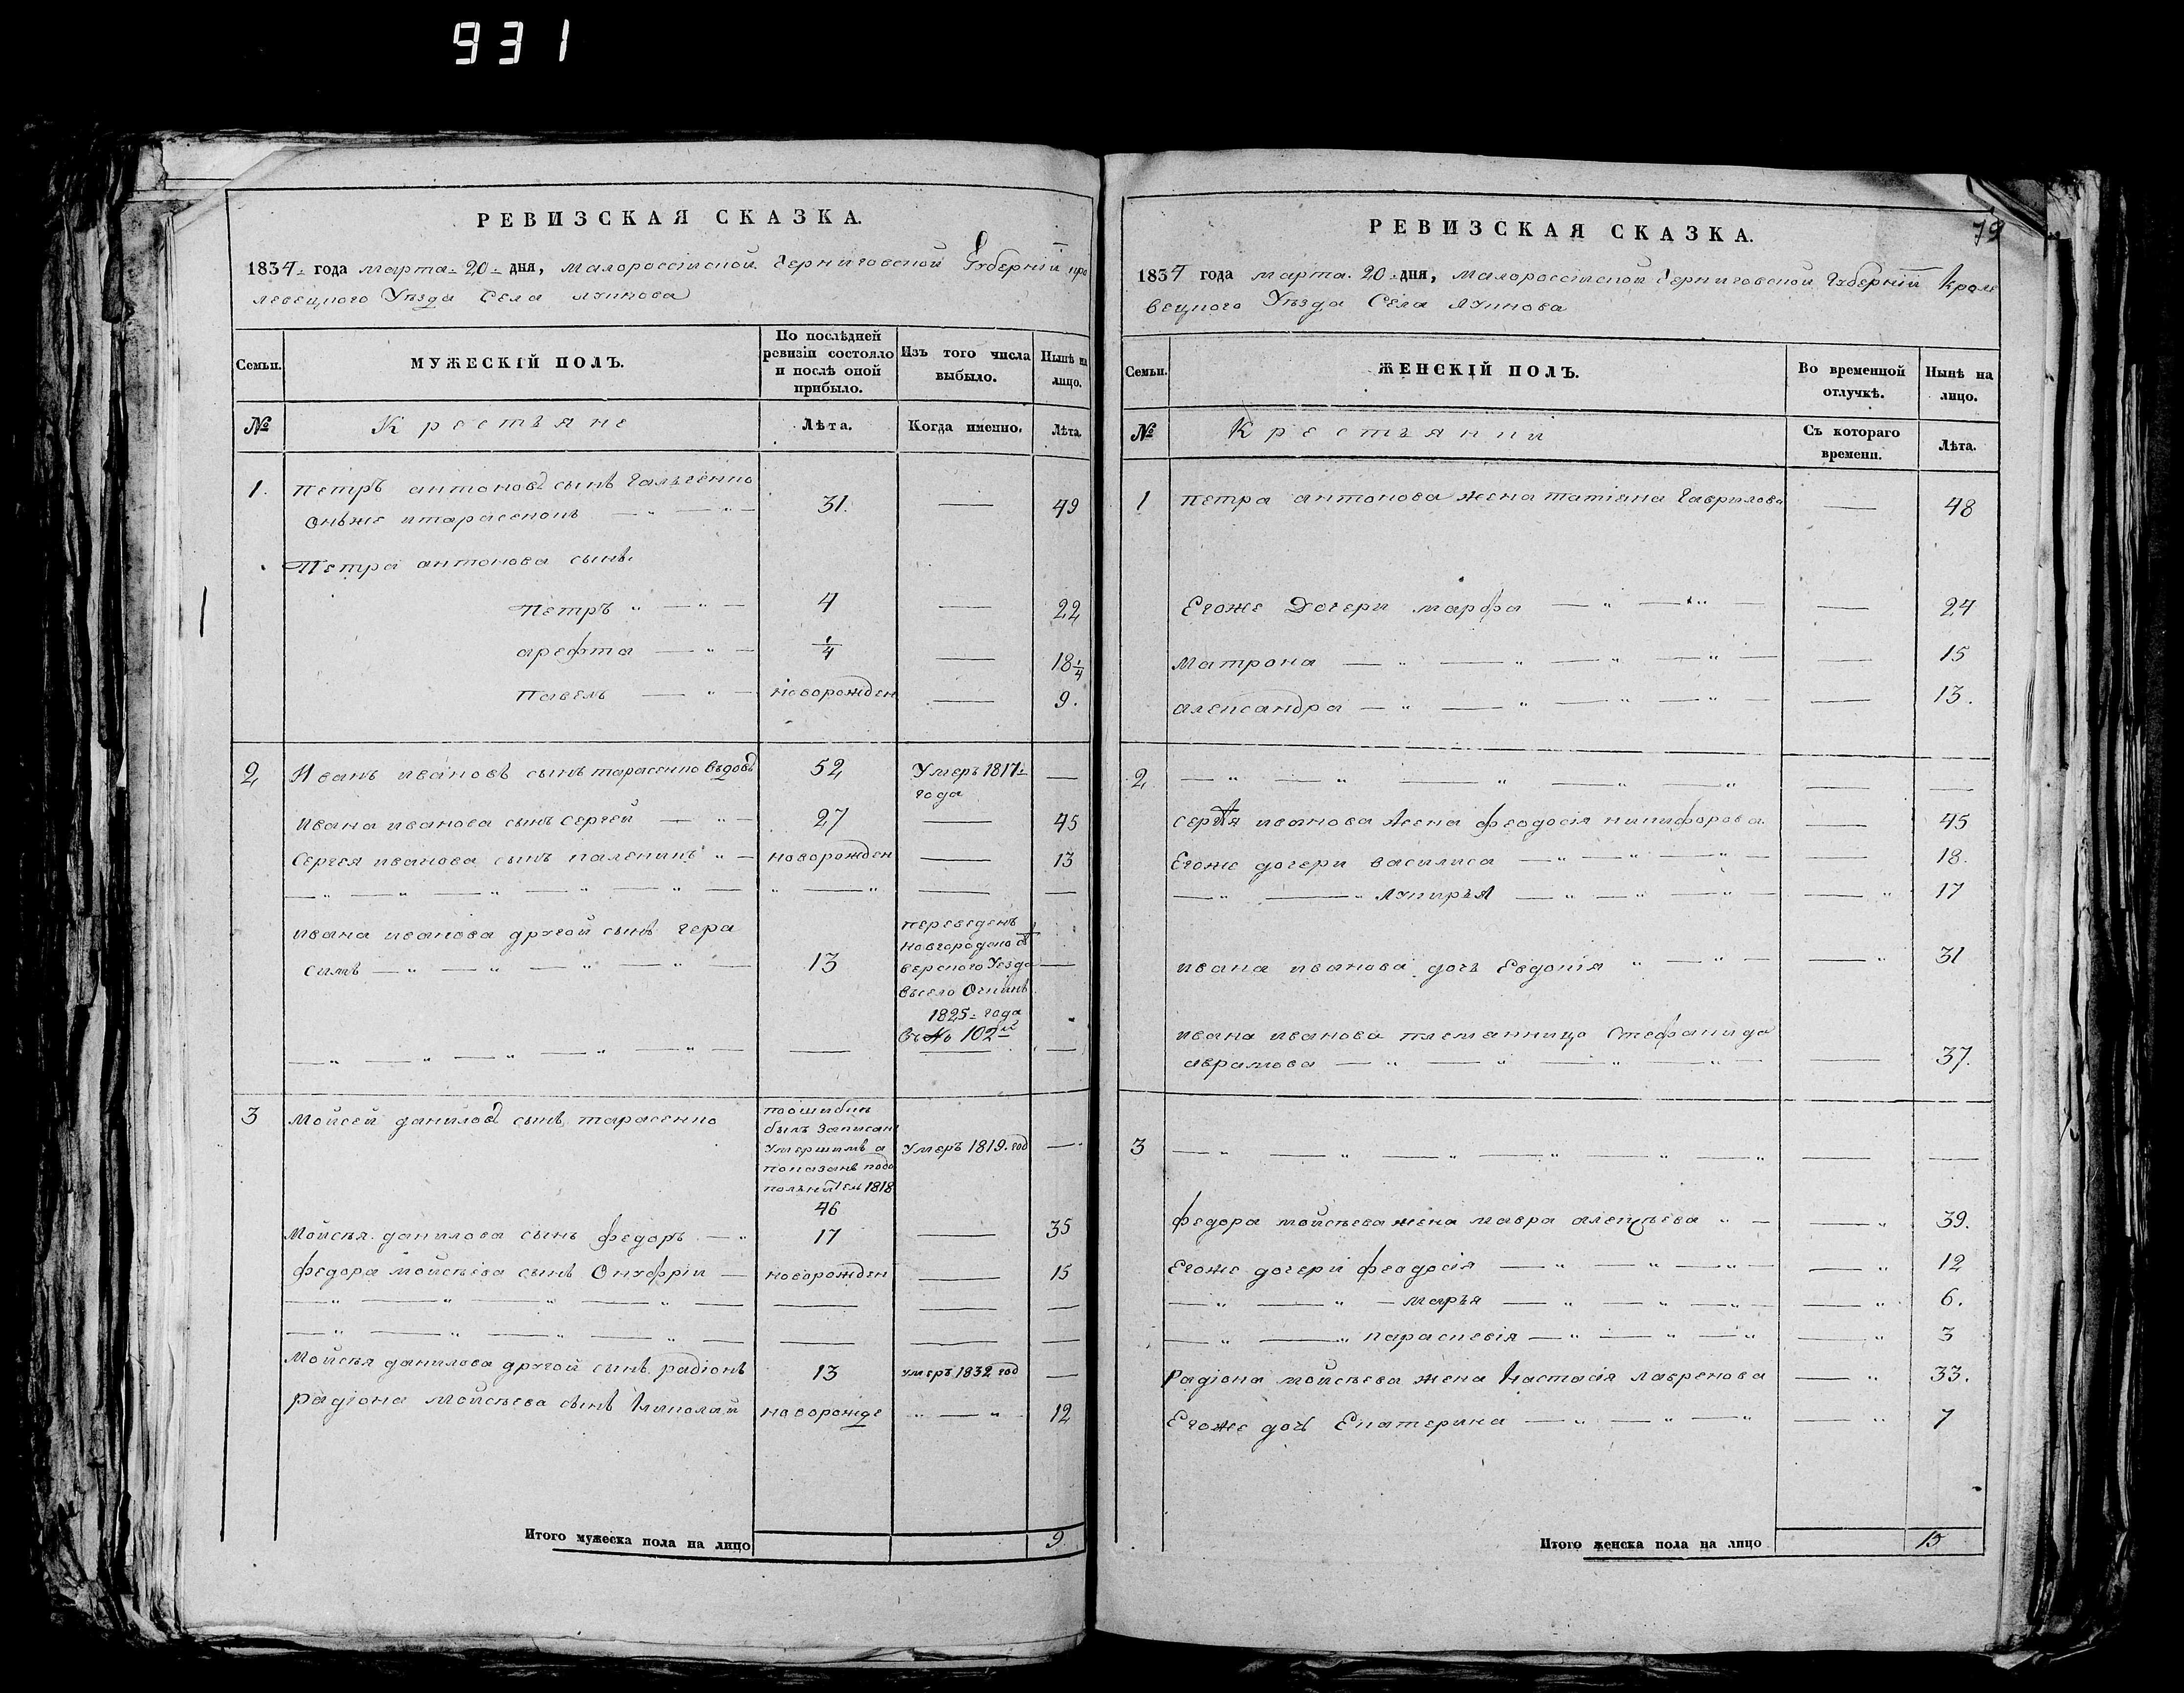 931
РЕВИЗСКАЯ СКАЗКА.
1834 года марта 20 дня, малороссійской Черниговской Губерніи кро
левецкого Уѣзда Села лукнова
Семьи.
МУЖЕСКІЙ ПОЛЪ.
По послѣдней ревизіи состояло и послѣ оной прибыло.
Изъ того числа выбыло.
Нынѣ на лицо.
№
Крестьяне
Лѣта.
Когда именно.
Лѣта.
1. петръ антоновъ сынъ Гальченко
онъже итарасенокъ 31. — 49
Петра антонова сынъ.
петръ 4 — 22
арефта 1/4 — 18 1/4
павелъ новорожден — 9.
2 Иванъ ивановъ сынъ тарасенко вѣдовъ 52 Умеръ 1817 года —
ивана иванова сынъ Сергей 27 — 45
Сергея иванова сынъ каленикъ новорожден — 13
ивана иванова другой сынъ гера
симъ 13 переведенъ новгородско сѣ верского Уезда всело Очкинъ 1825 года въ № 102й —
3 Мойсей даниловъ сынъ тарасенко поошибки былъ Записанъ Умершимъ а показанъ подо 1818 46 Умеръ 1819. год —
Мойсѣя данилова сынъ федоръ 17 — 35
федора мойсѣева сынъ Онуфріи новорожден — 15
Мойсѣя данилова другой сынъ радіонъ 13 умеръ 1832 год —
радіона мойсѣева сынъ николай новорожде 12
Итого мужеска пола на лицо 9
79
РЕВИЗСКАЯ СКАЗКА.
1834 года марта 20 дня, малороссійской Черниговской Губерніи Кроле
вецкого Уѣзда Села лукнова
Семьи.
ЖЕНСКІЙ ПОЛЪ.
Во временной отлучкѣ.
Нынѣ на лицо.
№
Крестьянки
Съ котораго времени.
Лѣта.
1 петра антонова жена татіяна Гаврилова — 48
Егоже Дочери марфа — 24
матрона — 15
александра — 13.
2
Сергѣя иванова жена феодосія никифорова — 45
Егоже дочери василиса — 18.
лукирья — 17
ивана иванова дочь Евдокія — 31
ивана иванова племянница Стефанида
аврамова — 37.
3
федора мойсѣева жена мавра алексѣева — 39.
Егоже дочери феодосія — 12
марья — 6.
параскевія — 3
Радіона мойсѣева жена Настасія лавренова — 33.
Егоже дочь Екатерина — 7
Итого женска пола на лицо 15